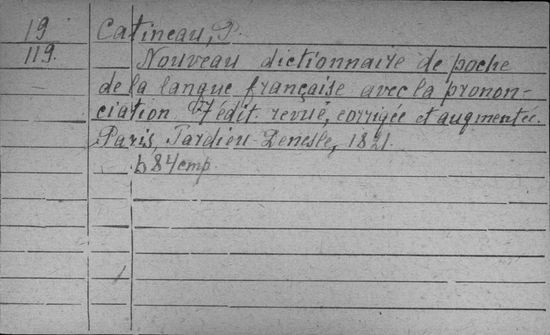 19
119.
Catineau, P.
Nouveau dictionnaire de poche
de la langue française avec la pronon-
ciation. 7 édit. revue, corrigée et augmentée.
Paris, Tardieu-Denesle, 1821.
584 стр.